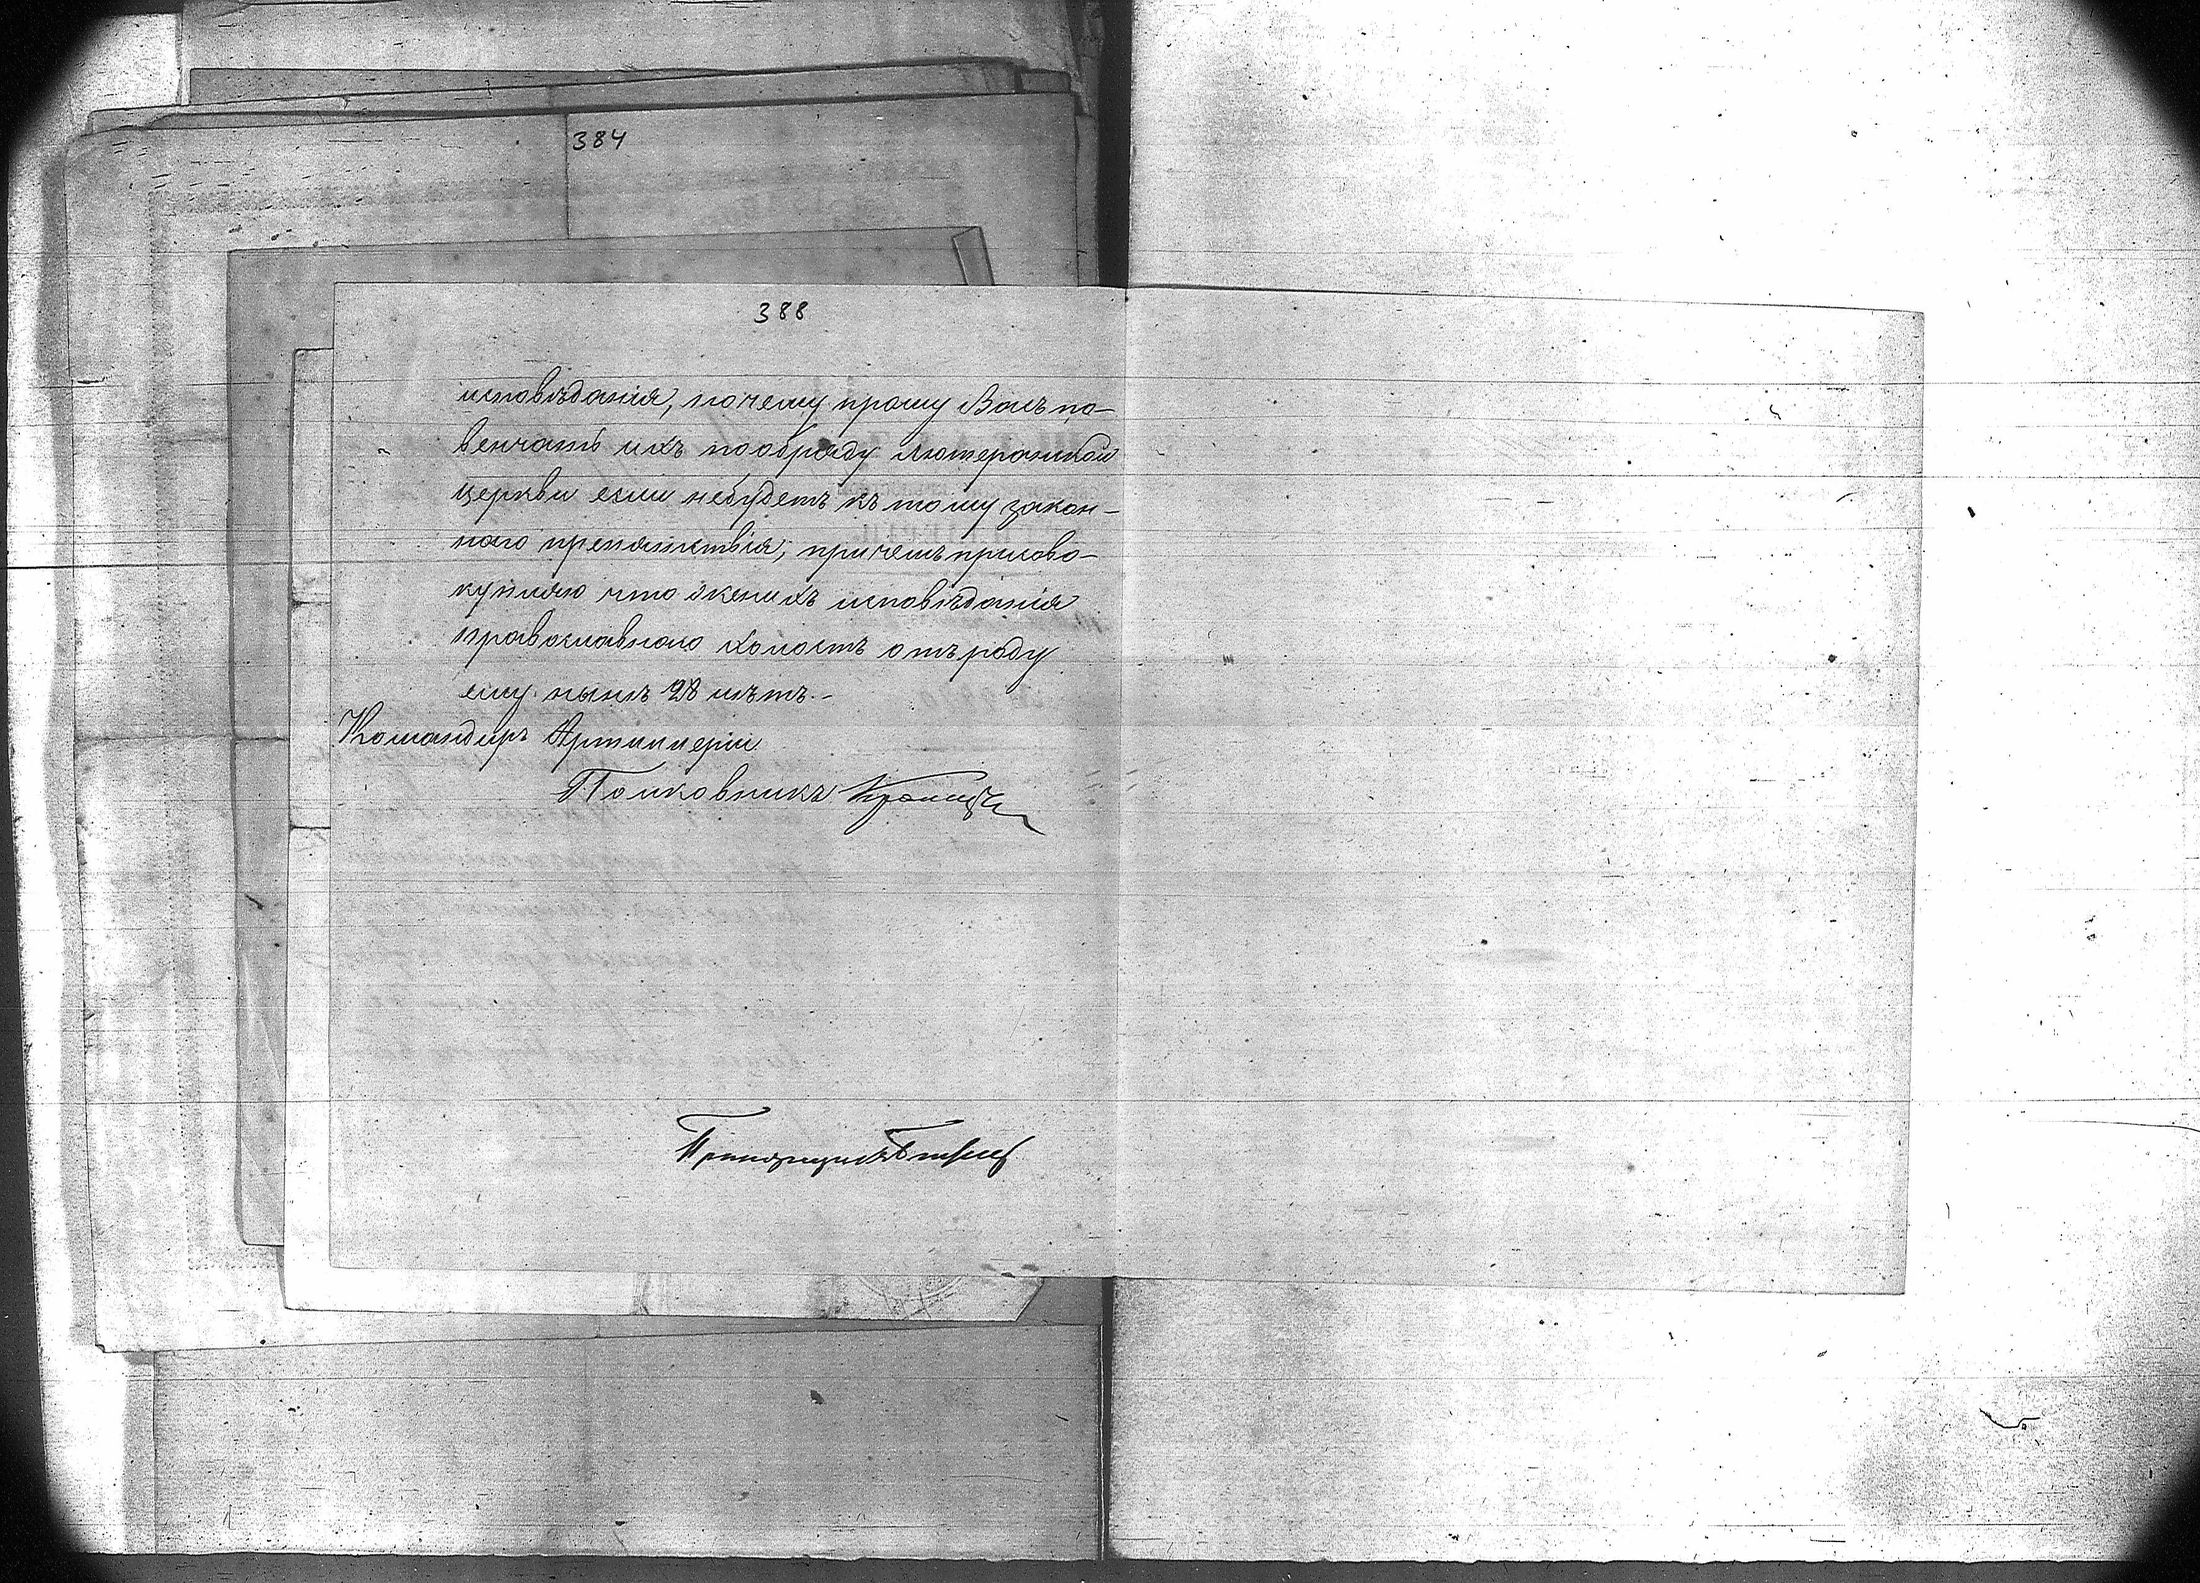 384
388
исповѣданія, почему прошу Васъ по-
венчать ихъ пообряду Лютеранской
церкви если небудетъ къ тому закон-
наго препятствія, причемъ присово-
купляю что женихъ исповѣданія
православнаго холостъ отъ роду
ему нынѣ 28 лѣтъ.-
Командиръ Артиллеріи
Полковникъ